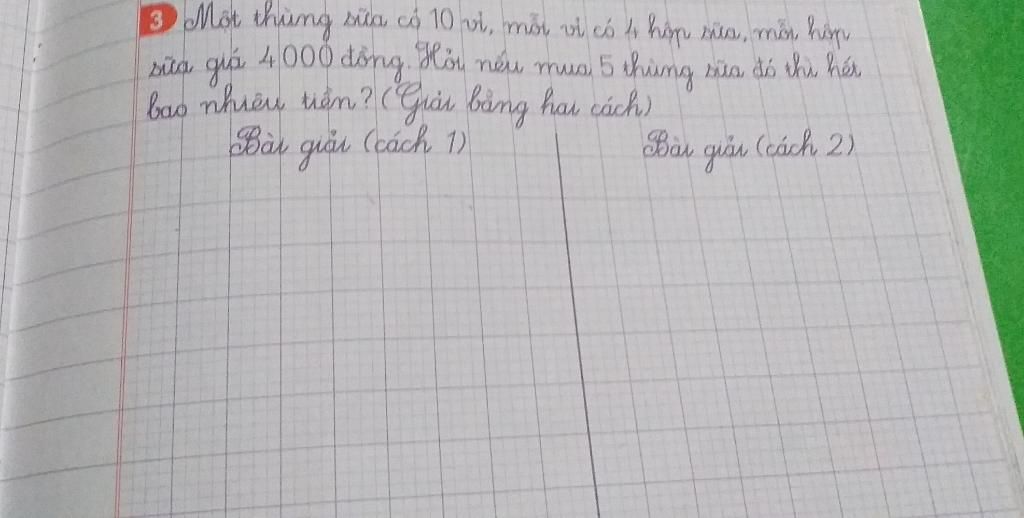 3 Một thùng sữa có 10 vỉ, mỗi vỉ có 4 hộp sữa, mỗi hộp
sữa giá 4000 đồng. Hỏi nếu mua 5 thùng sữa đó thì hết
bao nhiêu tiền? (Giải bằng hai cách)
Bài giải (cách 1) Bài giải (cách 2)